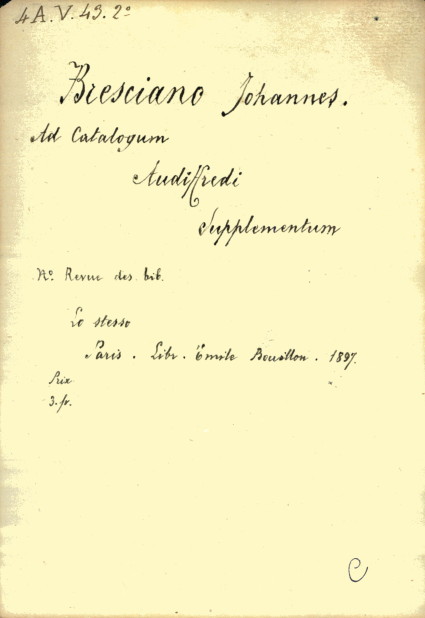 4 A.V. 43. 2º
Bresciano Johannes.
Ad Catalogum
Audiffredi
Supplementum
Nº Revue des bib.
Lo stesso
Paris. Libr. Émile Bouillon. 1897.
Prix
3. fr.
C